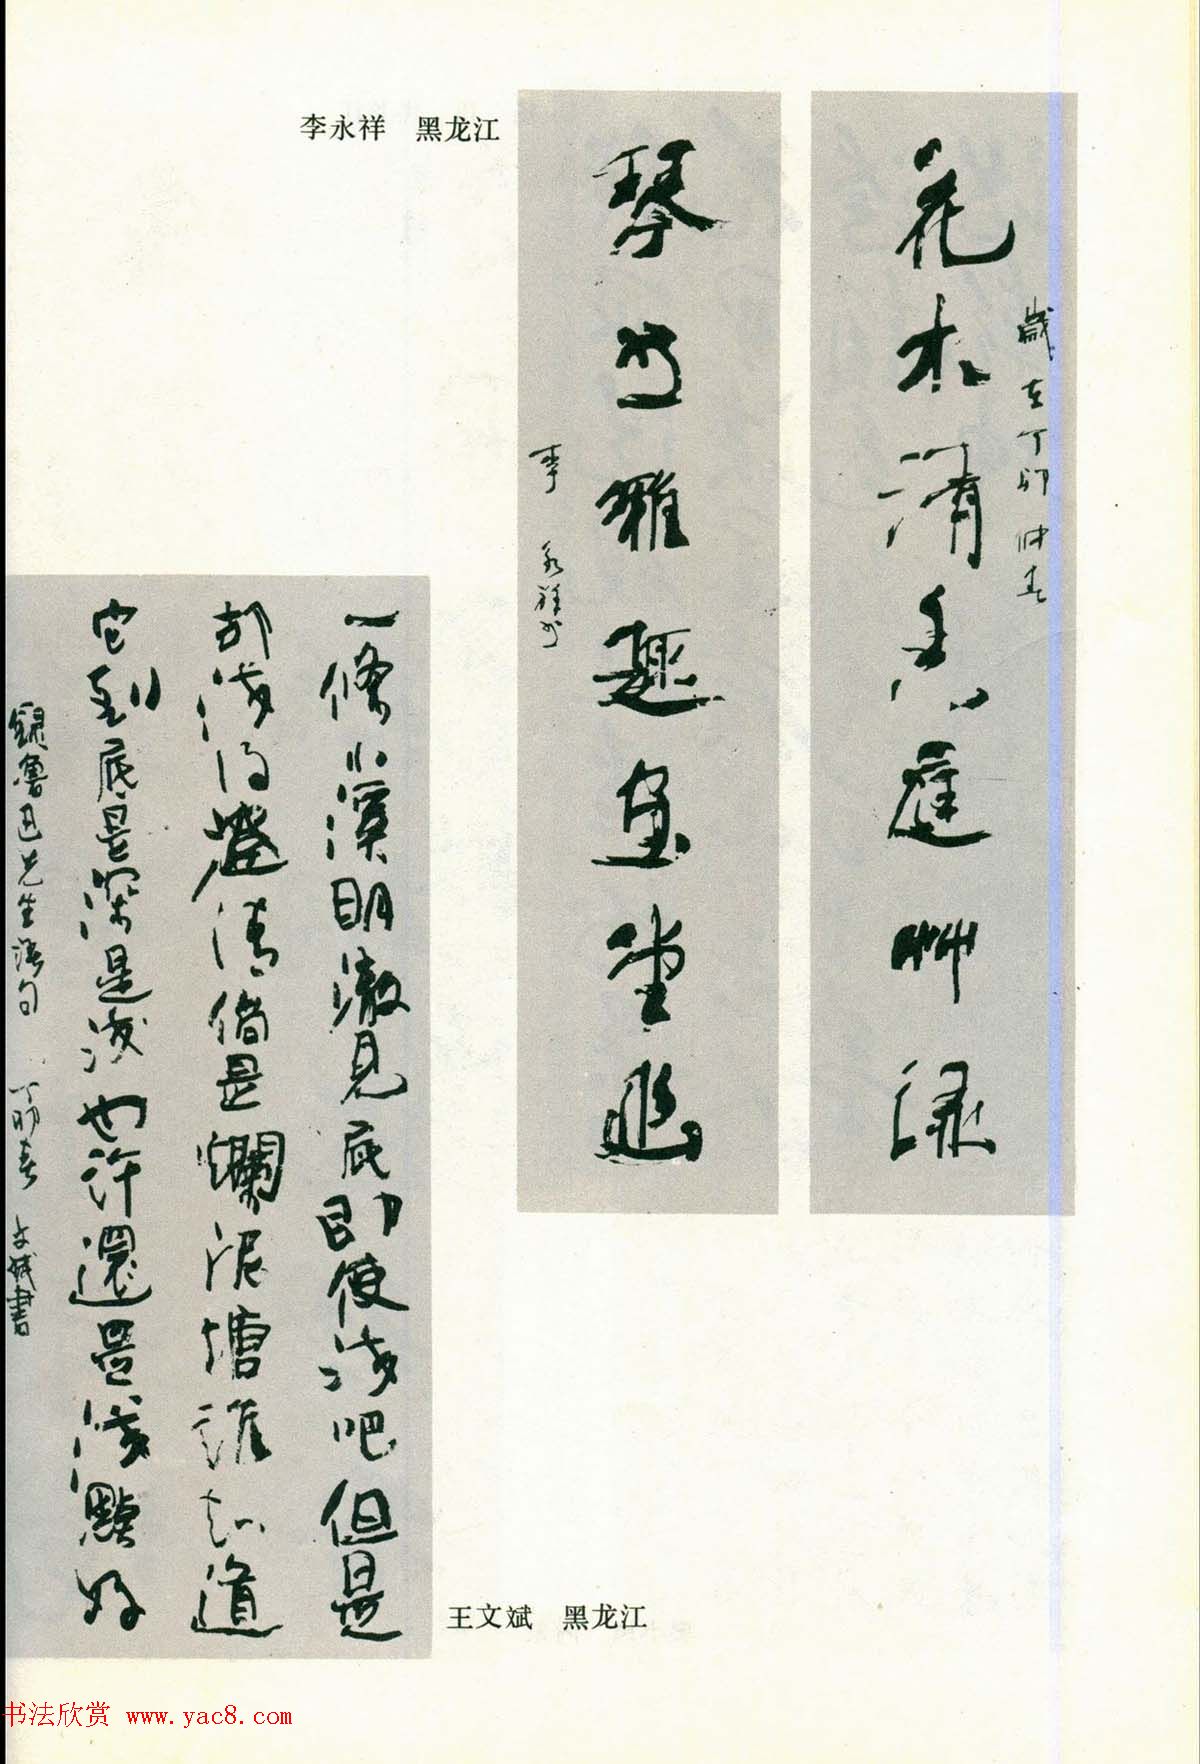 李永祥 黑龙江
花木清香庭艸綠
歲在丁卯仲春
琴书雅趣画堂幽
李永祥书
一條小溪明澈見底即使浅吧但是
却浅得澄清倘是爛泥塘誰知道
它到底是深是浅也許還是淺點好
録魯迅先生語句 丁卯春 文斌書
王文斌 黑龙江
书法欣赏 www.yac8.com